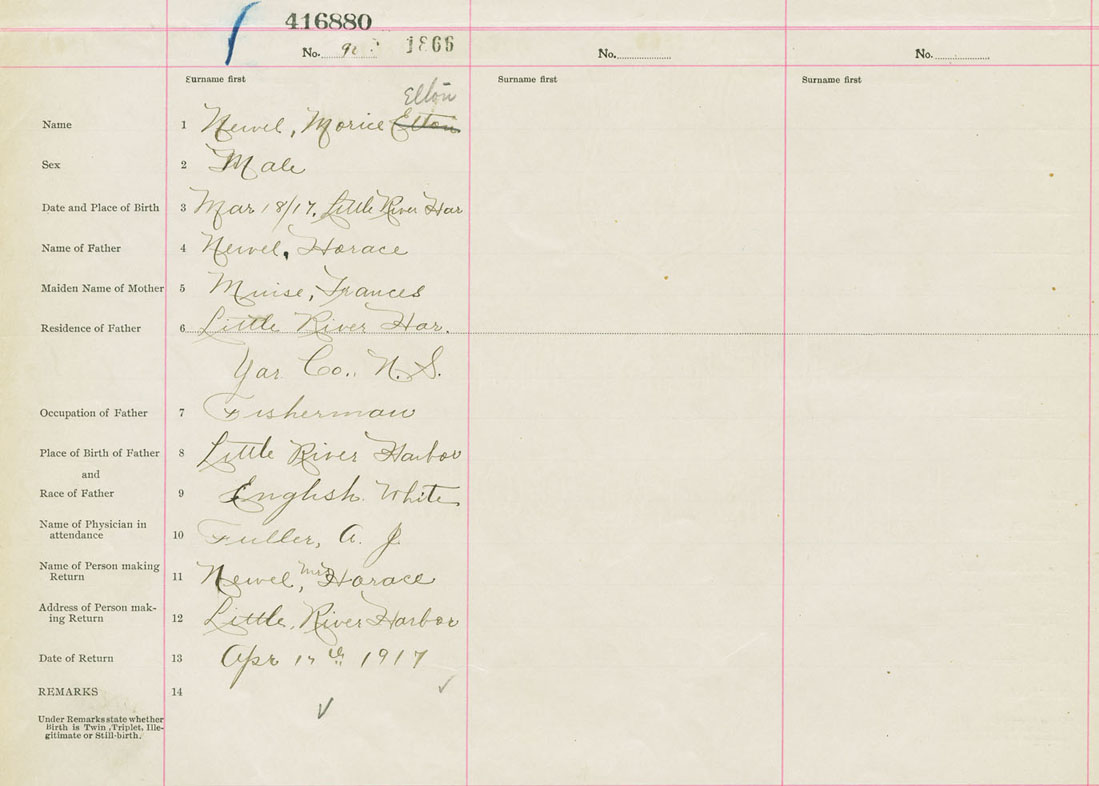 416880
No. 1866 No. No.
Surname first Surname first Surname first
Elton
Name 1 Newel, Morice Elton
Sex 2 Male
Date and Place of Birth 3 Mar 18/17, Little River Har
Name of Father 4 Newel, Horace
Maiden Name of Mother 5 Muise, Frances
Residence of Father 6 Little River Har.
Yar. Co., N. S.
Occupation of Father 7 Fisherman
Place of Birth of Father 8 Little River Harbor
and
Race of Father 9 English White
Name of Physician in
attendance 10 Fuller, A. J.
Name of Person making
Return 11 Newel, Mrs Horace
Address of Person mak-
ing Return 12 Little River Harbor
Date of Return 13 Apr 17th 1917
REMARKS 14
Under Remarks state whether
Birth is Twin, Triplet, Ille-
gitimate or Still-birth.